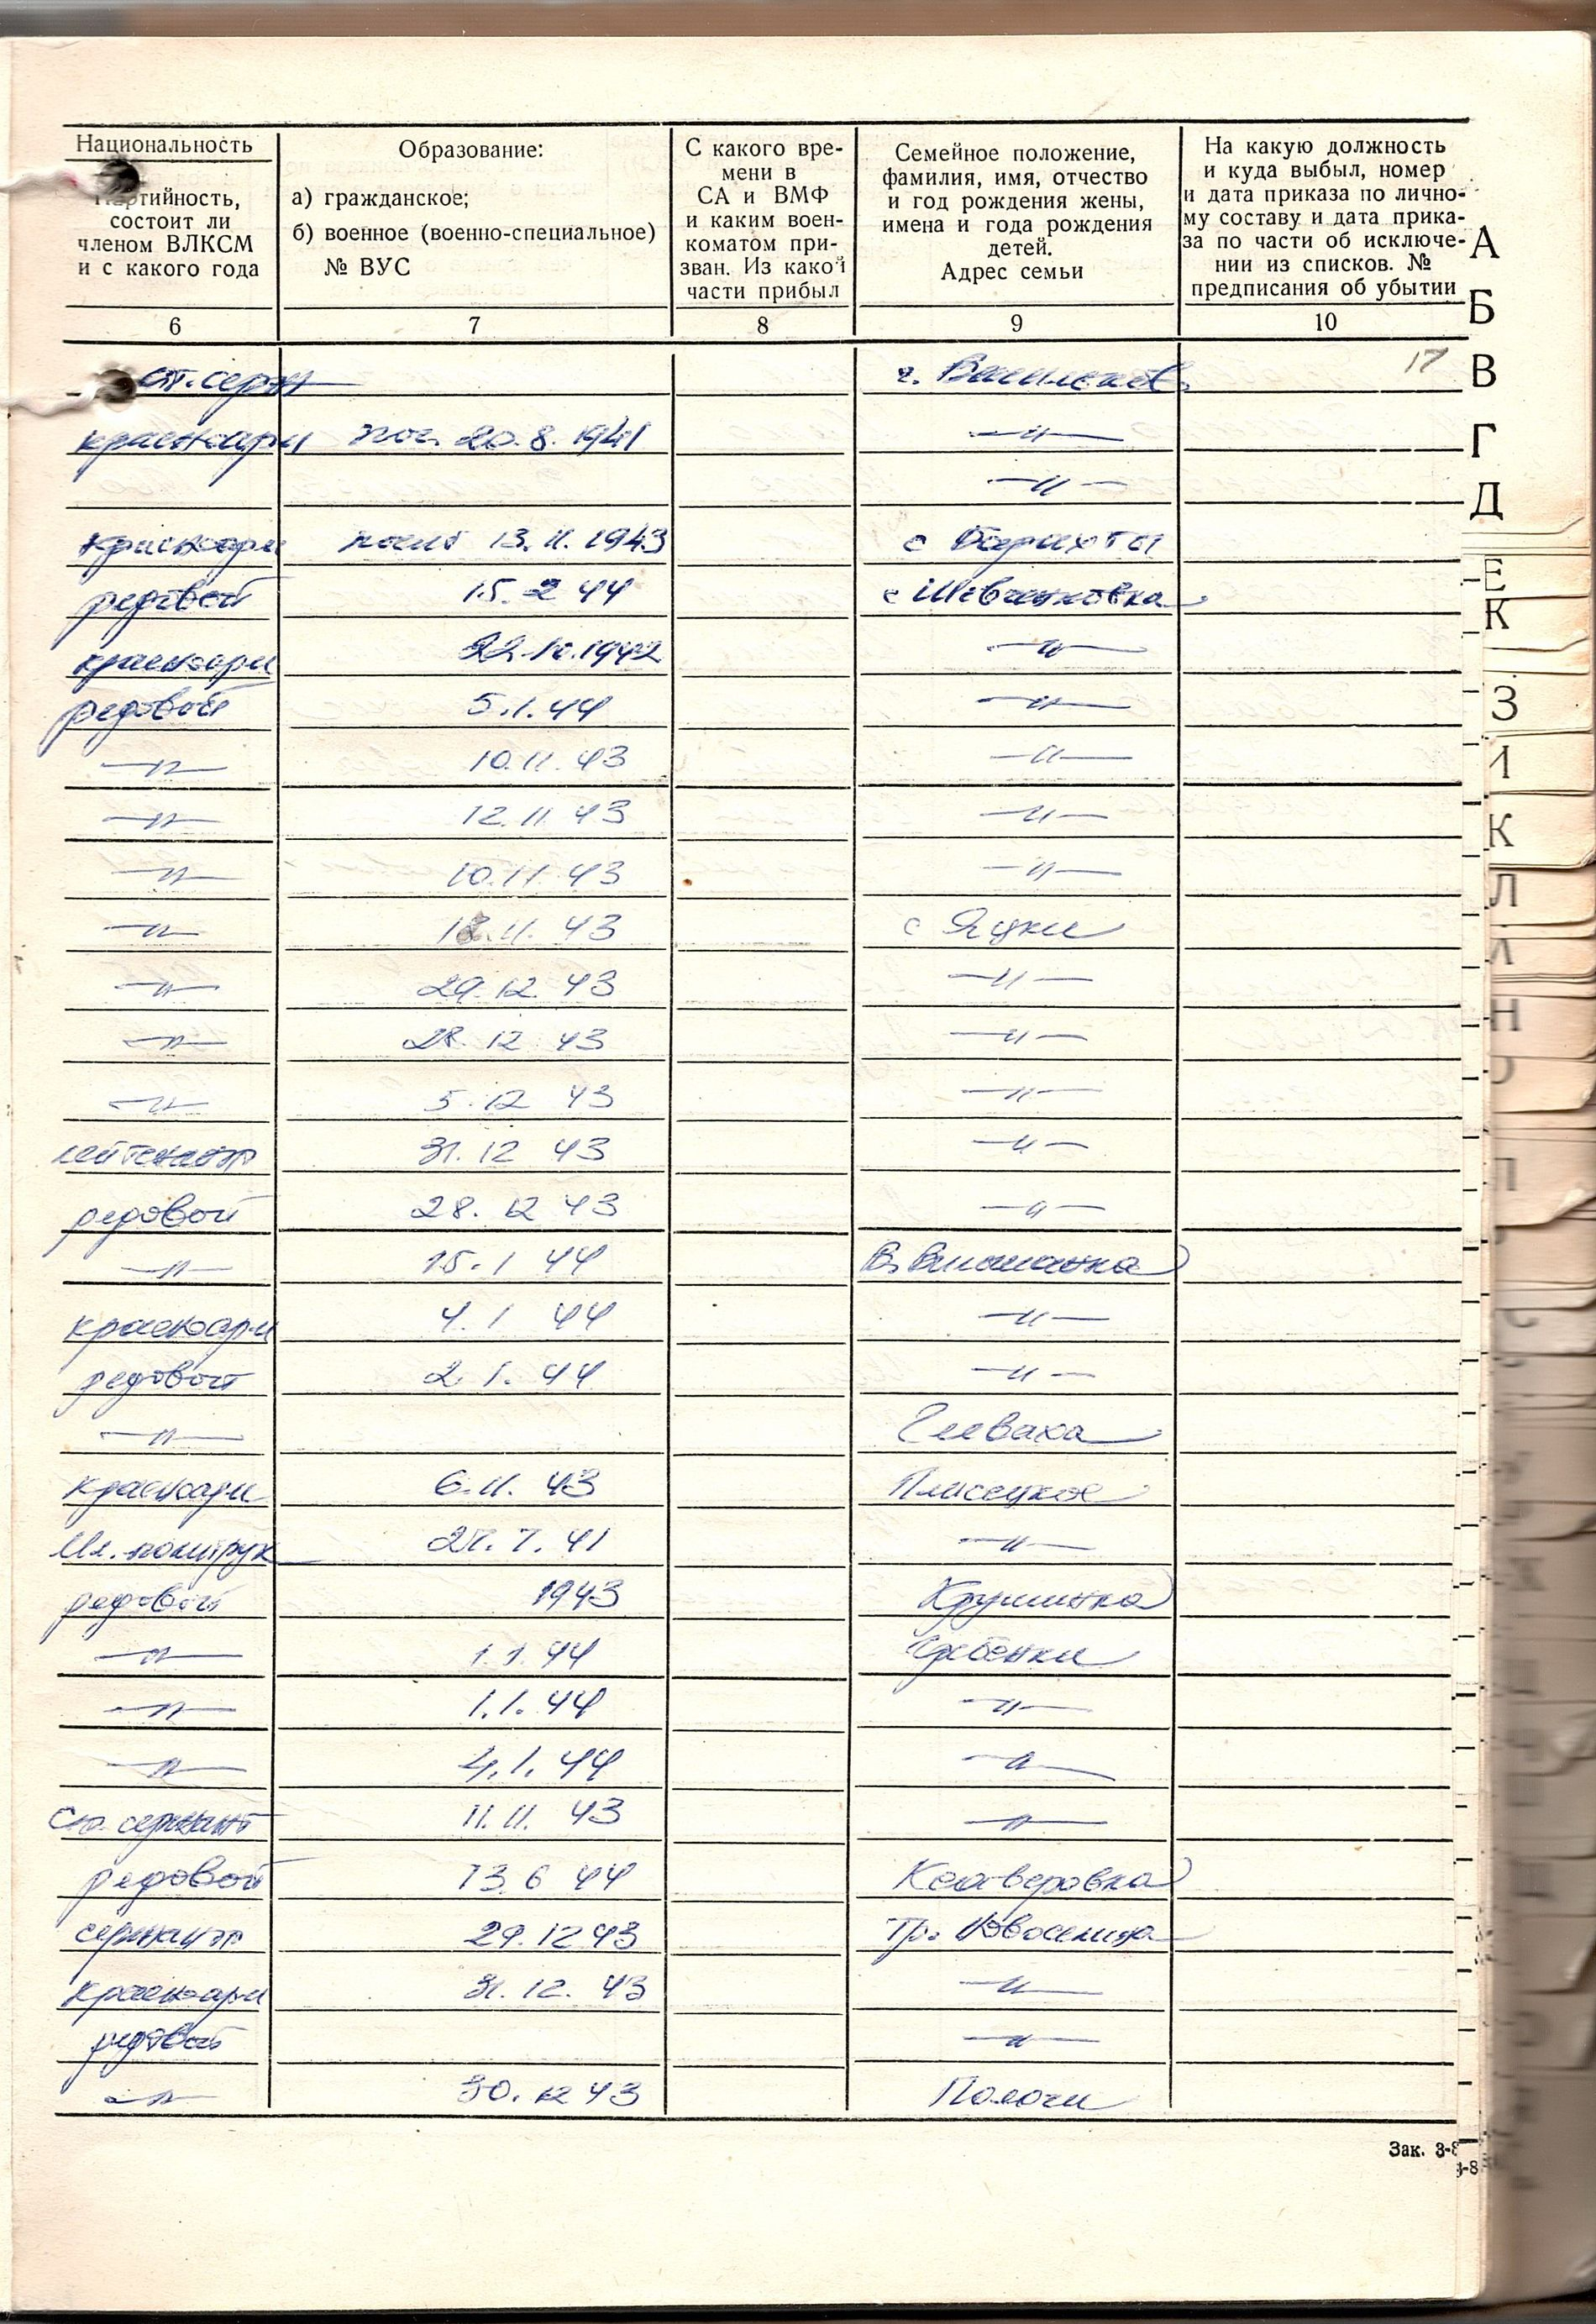 Национальность
Партийность,
состоит ли
членом ВЛКСМ
и с какого года
Образование:
а) гражданское;
б) военное (военно-специальное)
№ ВУС
С какого вре-
мени в
СА и ВМФ
и каким воен-
коматом при-
зван. Из какой
части прибыл
Семейное положение,
фамилия, имя, отчество
и год рождения жены,
имена и года рождения
детей.
Адрес семьи
На какую должность
и куда выбыл, номер
и дата приказа по лично-
му составу и дата прика-
за по части об исключе-
нии из списков. №
предписания об убытии
6 7 8 9 10
ст. серж г. Васильков 17
красноарм пог. 20.8.1941 —„—
—„—
красноарм 13.11.1943 с Барахты
редовой 15.2 44 с Шевченковка
красноарм 22.10.1942 —„—
редовой 5.1.44 —„—
—„— 10.11.43 —„—
—„— 12.11 43 —„—
—„— 10.11.43 —„—
—„— 18.11.43 с Яцки
—„— 29.12.43 —„—
—„— 28.12 43 —„—
—„— 5.12 43 —„—
лейтенант 31.12 43 —„—
редовой 28.12 43 —„—
—„— 15.1 44 В Вильшанка
красноарм 4.1 44 —„—
редовой 2.1.44 —„—
—„— Глеваха
красноарм 6.11.43 Плисецкое
Мл. политрук 27.7.41 —„—
редовой 1943 Крушинка
—„— 1.1.44 Гребенки
—„— 1.1.44 —„—
—„— 4.1.44 —„—
Ст. сержант 11.11.43 —„—
редовой 13.6 44 Ксаверовка
сержант 29.12 43 Тр. Новоселица
красноарм 31.12.43 —„—
редовой —„—
—„— 30.12 43 Пологи
Зак. 3-8
3-8
А
Б
В
Г
Д
Е
К
З
И
К
Л
Н